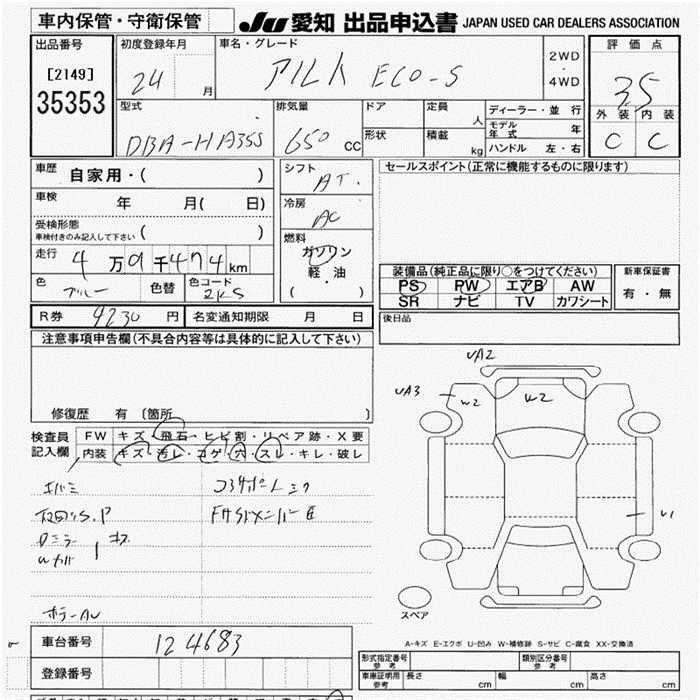 車内保管・守衛保管 JU 愛知 出品申込書 JAPAN USED CAR DEALERS ASSOCIATION
出品番号 初度登録年月 車名・グレード 評価点
[2149] 24 月 アルト ECO-S 2WD・4WD 3.5
35353 外装 内装
型式 排気量 ドア 定員 人 ディーラー・並行 C C
DBA-HA35S 650 CC 形状 積載 kg モデル年式 年
ハンドル 左・右
車歴 自家用・( ) シフト AT. セールスポイント(正常に機能するものに限ります)
車検 年 月( 日) 冷房 AC
受検形態 ( )
車検付きのみ記入して下さい
燃料 ガソリン
走行 4万9千474km 軽・油
( )
色 ブルー 色替 色コード ZKS
装備品(純正品に限り○をつけてください) 新車保証書
PS PW エアB AW 有・無
SR ナビ TV カワシート
R券 9230 円 名変通知期限 月 日 後日品
注意事項申告欄(不具合内容等は具体的に記入して下さい)
修復歴 有 〔箇所 〕
UA2
UA3
W2
U2
U1
検査員記入欄 FW キズ・飛石・ヒビ割・リペア跡・X要
内装 キズ・汚レ・コゲ・穴・スレ・キレ・破レ
スペア
A-キズ E-エクボ U-凹み W-補修跡 S-サビ C-腐食 XX-交換済
車台番号 124683
登録番号
形式指定番号 参考 類別区分番号 参考
車庫証明用 参考 長さ cm 幅 cm 高さ cm